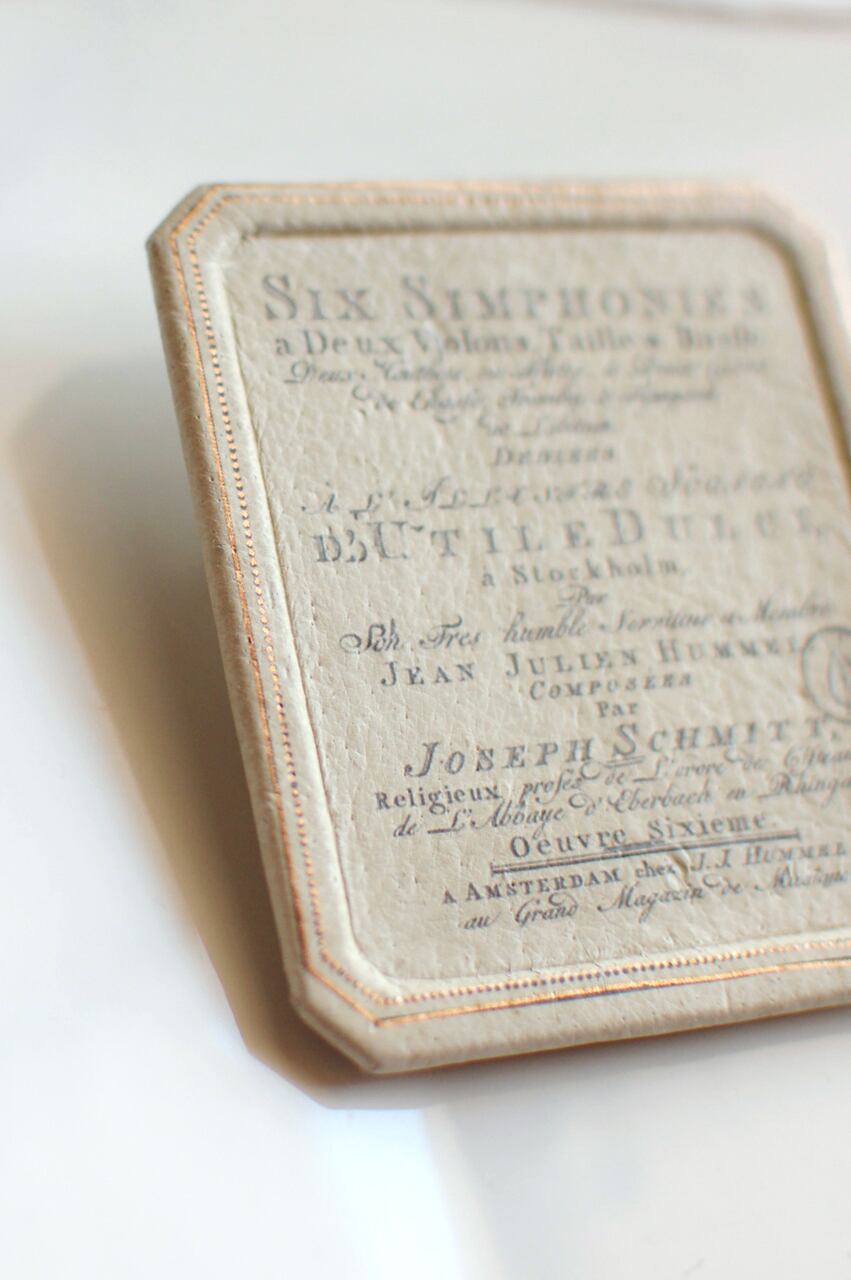 SIX SIMPHONIES
a Deux Violons Taille &
Deux
de
DEDIÉES
À L'ILLUSTRE
D'UTILE DULCI,
à Stockholm.
Par
Son Tres humble Serviteur & Membre
JEAN JULIEN HUMMEL
COMPOSÉES
Par
JOSEPH SCHMITT,
Religieux profés de L'ordre de
de L'Abbaye d'Eberbach en Rhinga
Oeuvre Sixieme.
A AMSTERDAM chez J. J. HUMMEL
au Grand Magazin de Musique